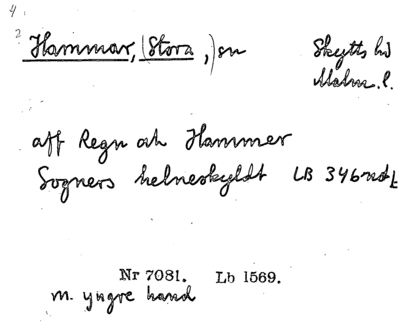 4
2
Hammar, (Stora,) sn Skytts hd
Malm. l.
aff Regn och Hammer
Sogners helneskyldt LB 346 ndt
Nr 7081. Lb 1569.
m. yngre hand